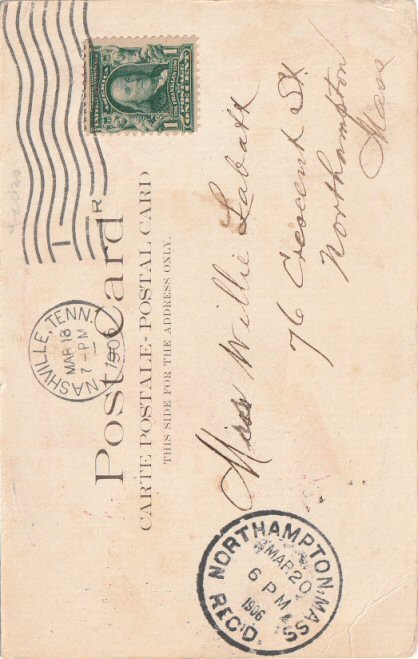 NASHVILLE, TENN.
MAR 18
7 - PM
1906
R
1
Post Card
CARTE POSTALE - POSTAL CARD
THIS SIDE FOR THE ADDRESS ONLY.
ONE CENT
Miss Willie Labatt
76 Crescent St
Northampton
Mass
NORTHAMPTON, MASS
MAR 20
6 PM
1906
REC'D.